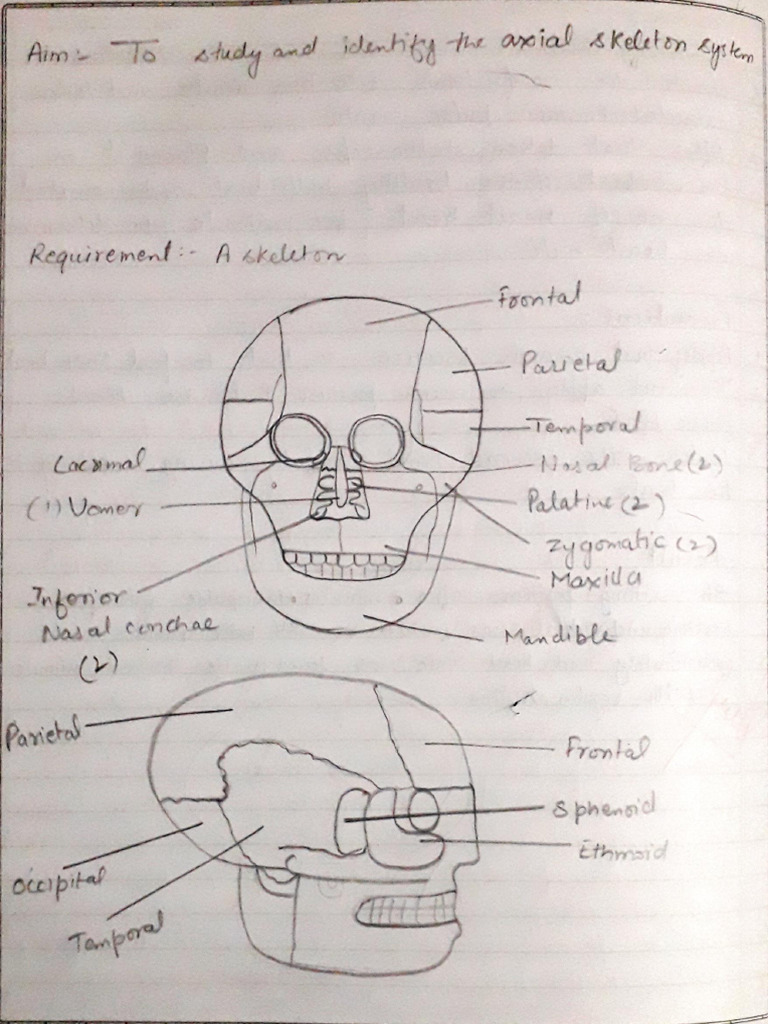 Aim:- To study and identify the axial skeleton system
Requirement:- A skeleton
Frontal
Parietal
Temporal
Lacrimal
Nasal Bone (2)
(1) Vomer
Palatine (2)
Zygomatic (2)
Maxilla
Inferior
Nasal conchae
(2)
Mandible
Parietal
Frontal
Sphenoid
Ethmoid
Occipital
Tamporal